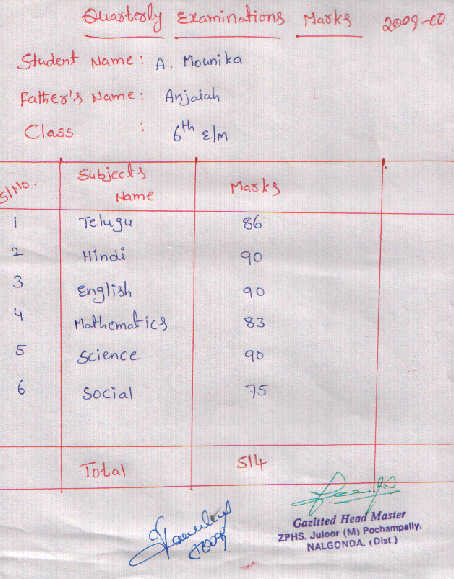 Quarterly Examinations Marks 2009-10
Student Name: A. Mounika
Father's Name: Anjaiah
Class : 6th E/M
Sl.No. Subjects Name Marks
1 Telugu 86
2 Hindi 90
3 English 90
4 Mathematics 83
5 Science 90
6 Social 75
Total 514
Gazitted Head Master
ZPHS. Juloor (M) Pochampally,
NALGONDA. (Dist)